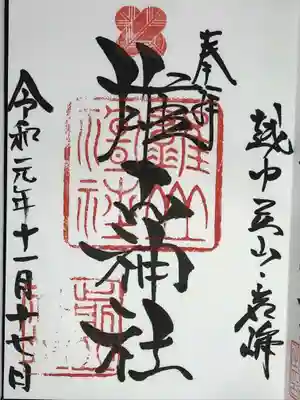 越中立山・岩峅
奉拝
雄山神社
令和元年十一月十七日